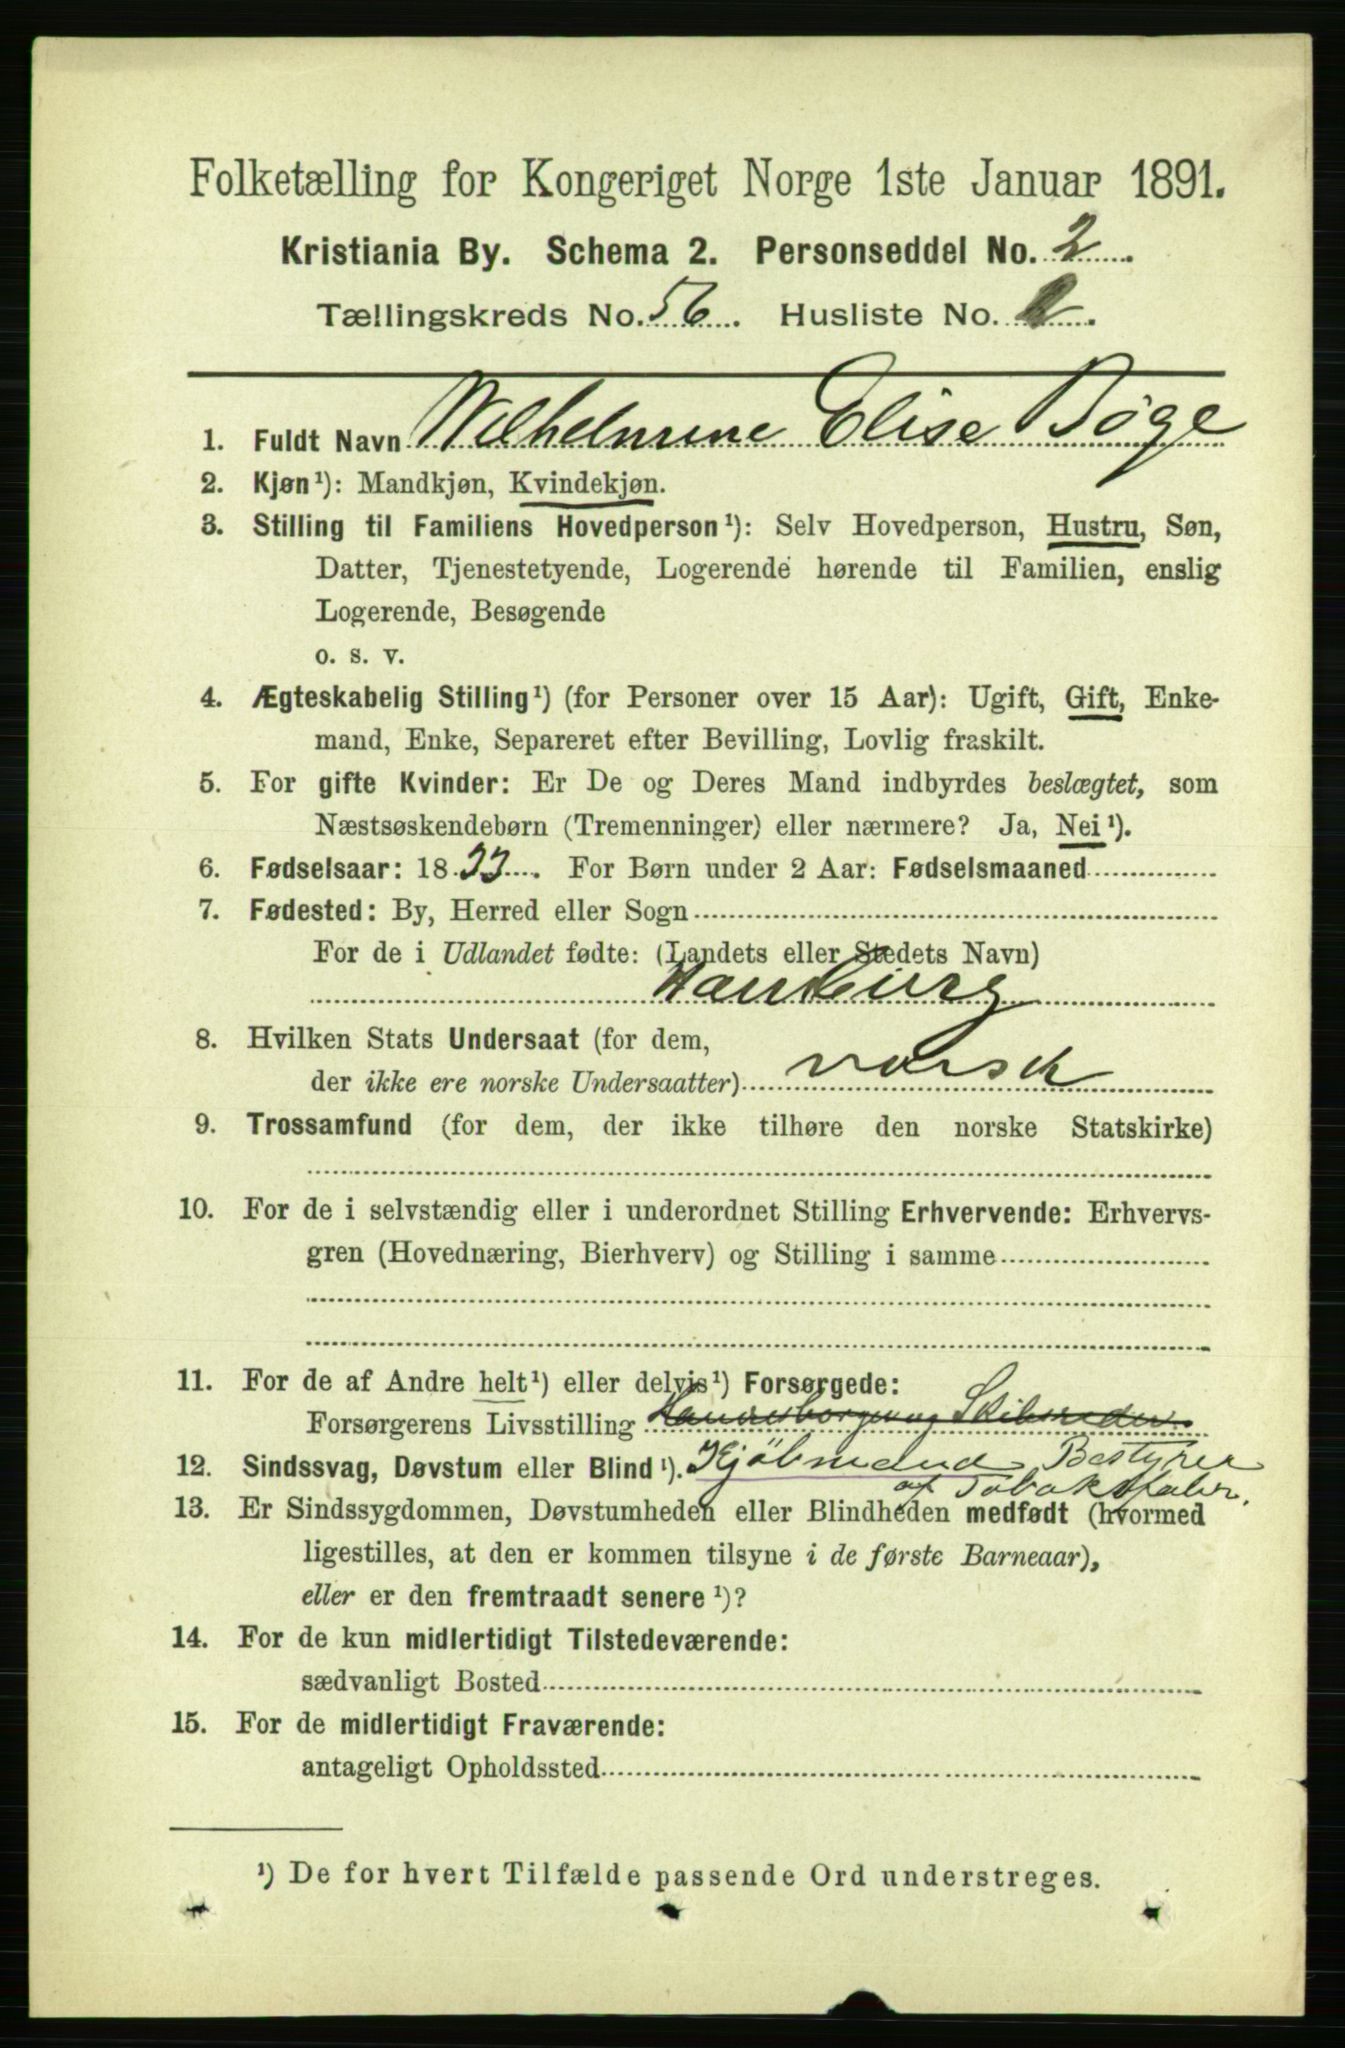 Folketælling for Kongeriget Norge 1ste Januar 1891.
Kristiania By. Schema 2. Personseddel No. 2
Tællingskreds No. 56. Husliste No.
1. Fuldt Navn Wilhelmine Elise Bøge
2. Kjøn¹): Mandkjøn, Kvindekjøn.
3. Stilling til Familiens Hovedperson¹): Selv Hovedperson, Hustru, Søn,
Datter, Tjenestetyende, Logerende hørende til Familien, enslig
Logerende, Besøgende
o. s. v.
4. Ægteskabelig Stilling¹) (for Personer over 15 Aar): Ugift, Gift, Enke-
mand, Enke, Separeret efter Bevilling, Lovlig fraskilt.
5. For gifte Kvinder: Er De og Deres Mand indbyrdes beslægtet, som
Næstsøskendebørn (Tremenninger) eller nærmere? Ja, Nei¹).
6. Fødselsaar: 1833. For Børn under 2 Aar: Fødselsmaaned
7. Fødested: By, Herred eller Sogn
For de i Udlandet fødte: (Landets eller Stedets Navn)
Hamburg
8. Hvilken Stats Undersaat (for dem,
der ikke ere norske Undersaatter) norsk
9. Trossamfund (for dem, der ikke tilhøre den norske Statskirke)
10. For de i selvstændig eller i underordnet Stilling Erhvervende: Erhvervs-
gren (Hovednæring, Bierhverv) og Stilling i samme
11. For de af Andre helt¹) eller delvis¹) Forsørgede:
Forsørgerens Livsstilling Skibsreder
12. Sindssvag, Døvstum eller Blind¹). Kjöbmand, Bestyrer
af Tobaksfabr.
13. Er Sindssygdommen, Døvstumheden eller Blindheden medfødt (hvormed
ligestilles, at den er kommen tilsyne i de første Barneaar),
eller er den fremtraadt senere¹)?
14. For de kun midlertidigt Tilstedeværende:
sædvanligt Bosted
15. For de midlertidigt Fraværende:
antageligt Opholdssted
¹) De for hvert Tilfælde passende Ord understreges.